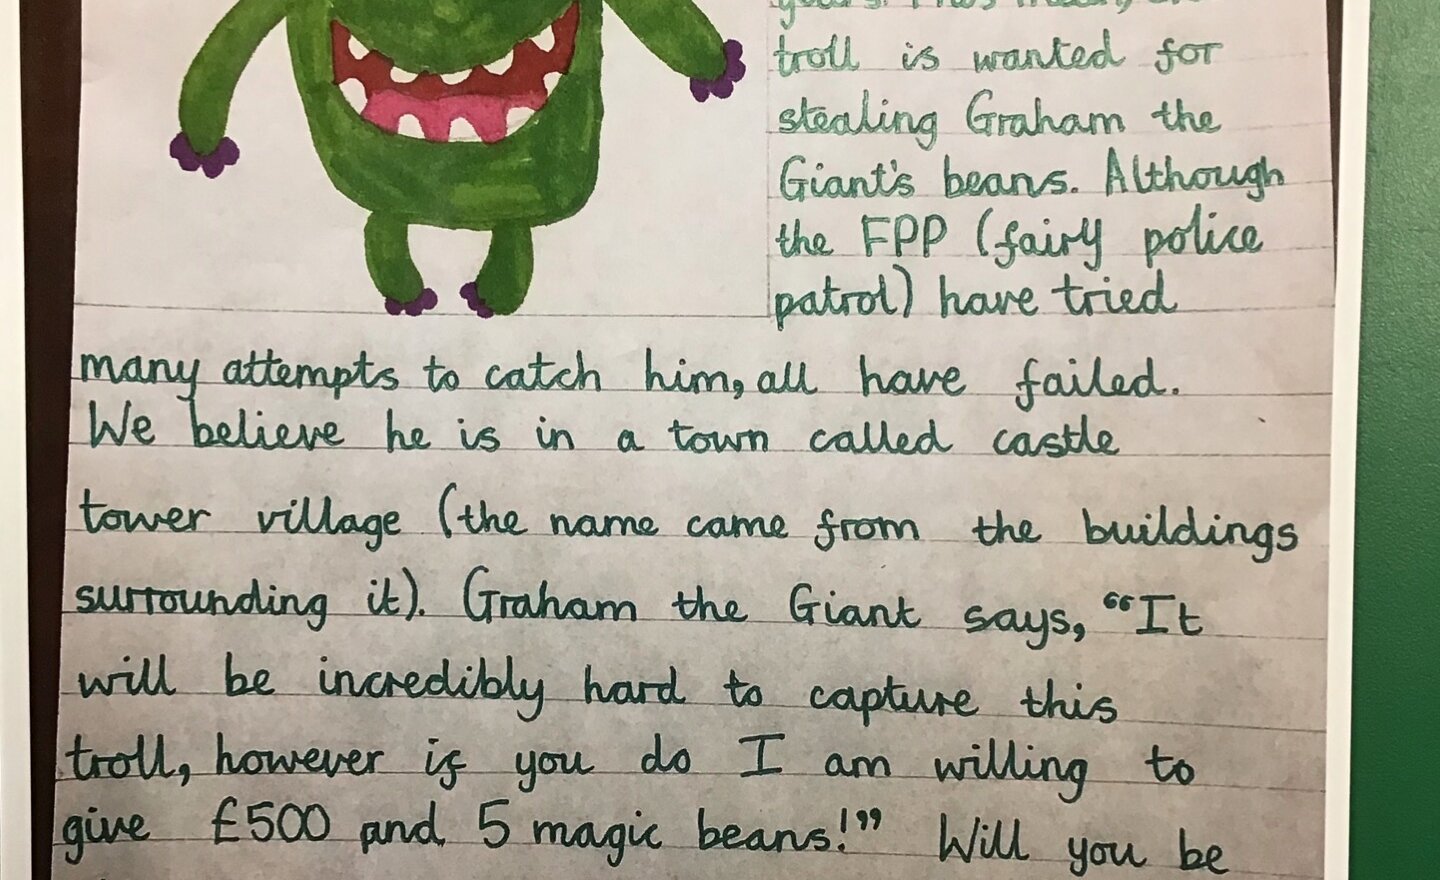 troll is wanted for
stealing Graham the
Giant's beans. Although
the FPP (fairy police
patrol) have tried
many attempts to catch him, all have failed.
We believe he is in a town called castle
tower village (the name came from the buildings
surrounding it). Graham the Giant says, “It
will be incredibly hard to capture this
troll, however if you do I am willing to
give £500 and 5 magic beans!” Will you be